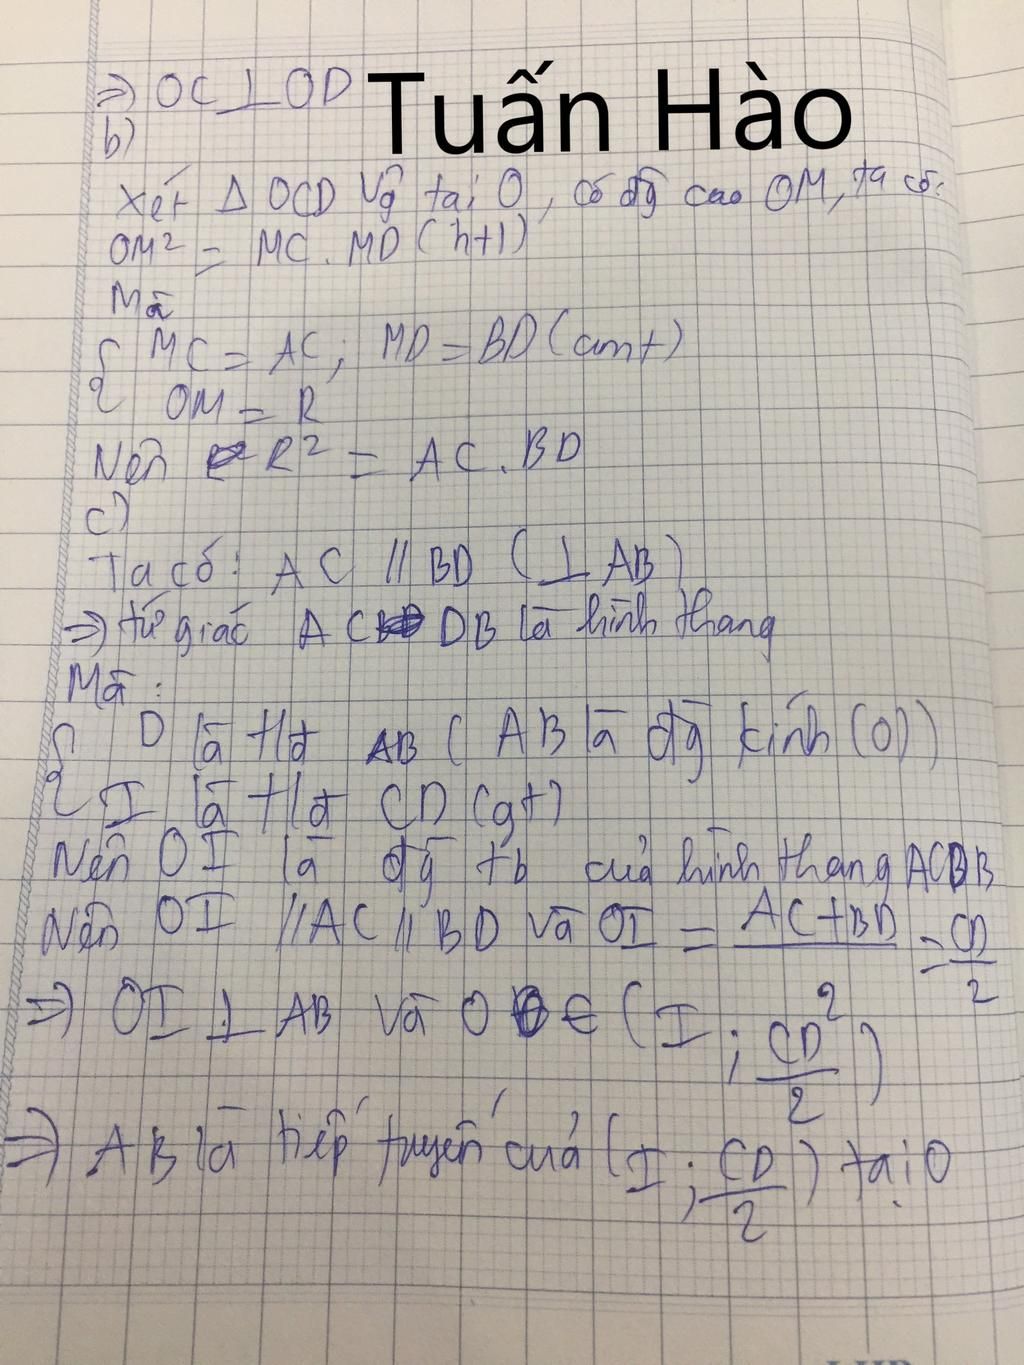 ⇒ OC ⊥ OD Tuấn Hào
b)
Xét Δ OCD Vg tại O, có đg cao OM, ta có:
OM² = MC . MD (htl)
Mà
{ MC = AC; MD = BD (cmt)
OM = R
Nên R² = AC . BD
c)
Ta có: AC // BD (⊥ AB)
⇒ tứ giác AC DB là hình thang
Mà:
{ D là tđ AB (AB là đg kính (O))
I là tđ CD (gt)
Nên OI là đg tb của hình thang ACDB
Nên OI // AC // BD và OI = AC + BD / 2 = CD / 2
⇒ OI ⊥ AB và O ∈ (I; CD / 2)
⇒ AB là tiếp tuyến của (I; CD / 2) tại O